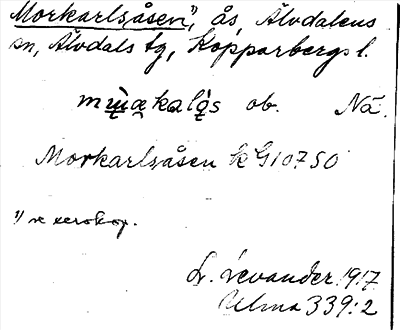 Morkarlsåsen¹⁾, ås, Älvdalens
sn, Älvdals tg, Kopparbergs l.
ob. Nä.
Morkarlsåsen k G10750
1) se xerokop.
L. Levander 1917
Ulma 339:2